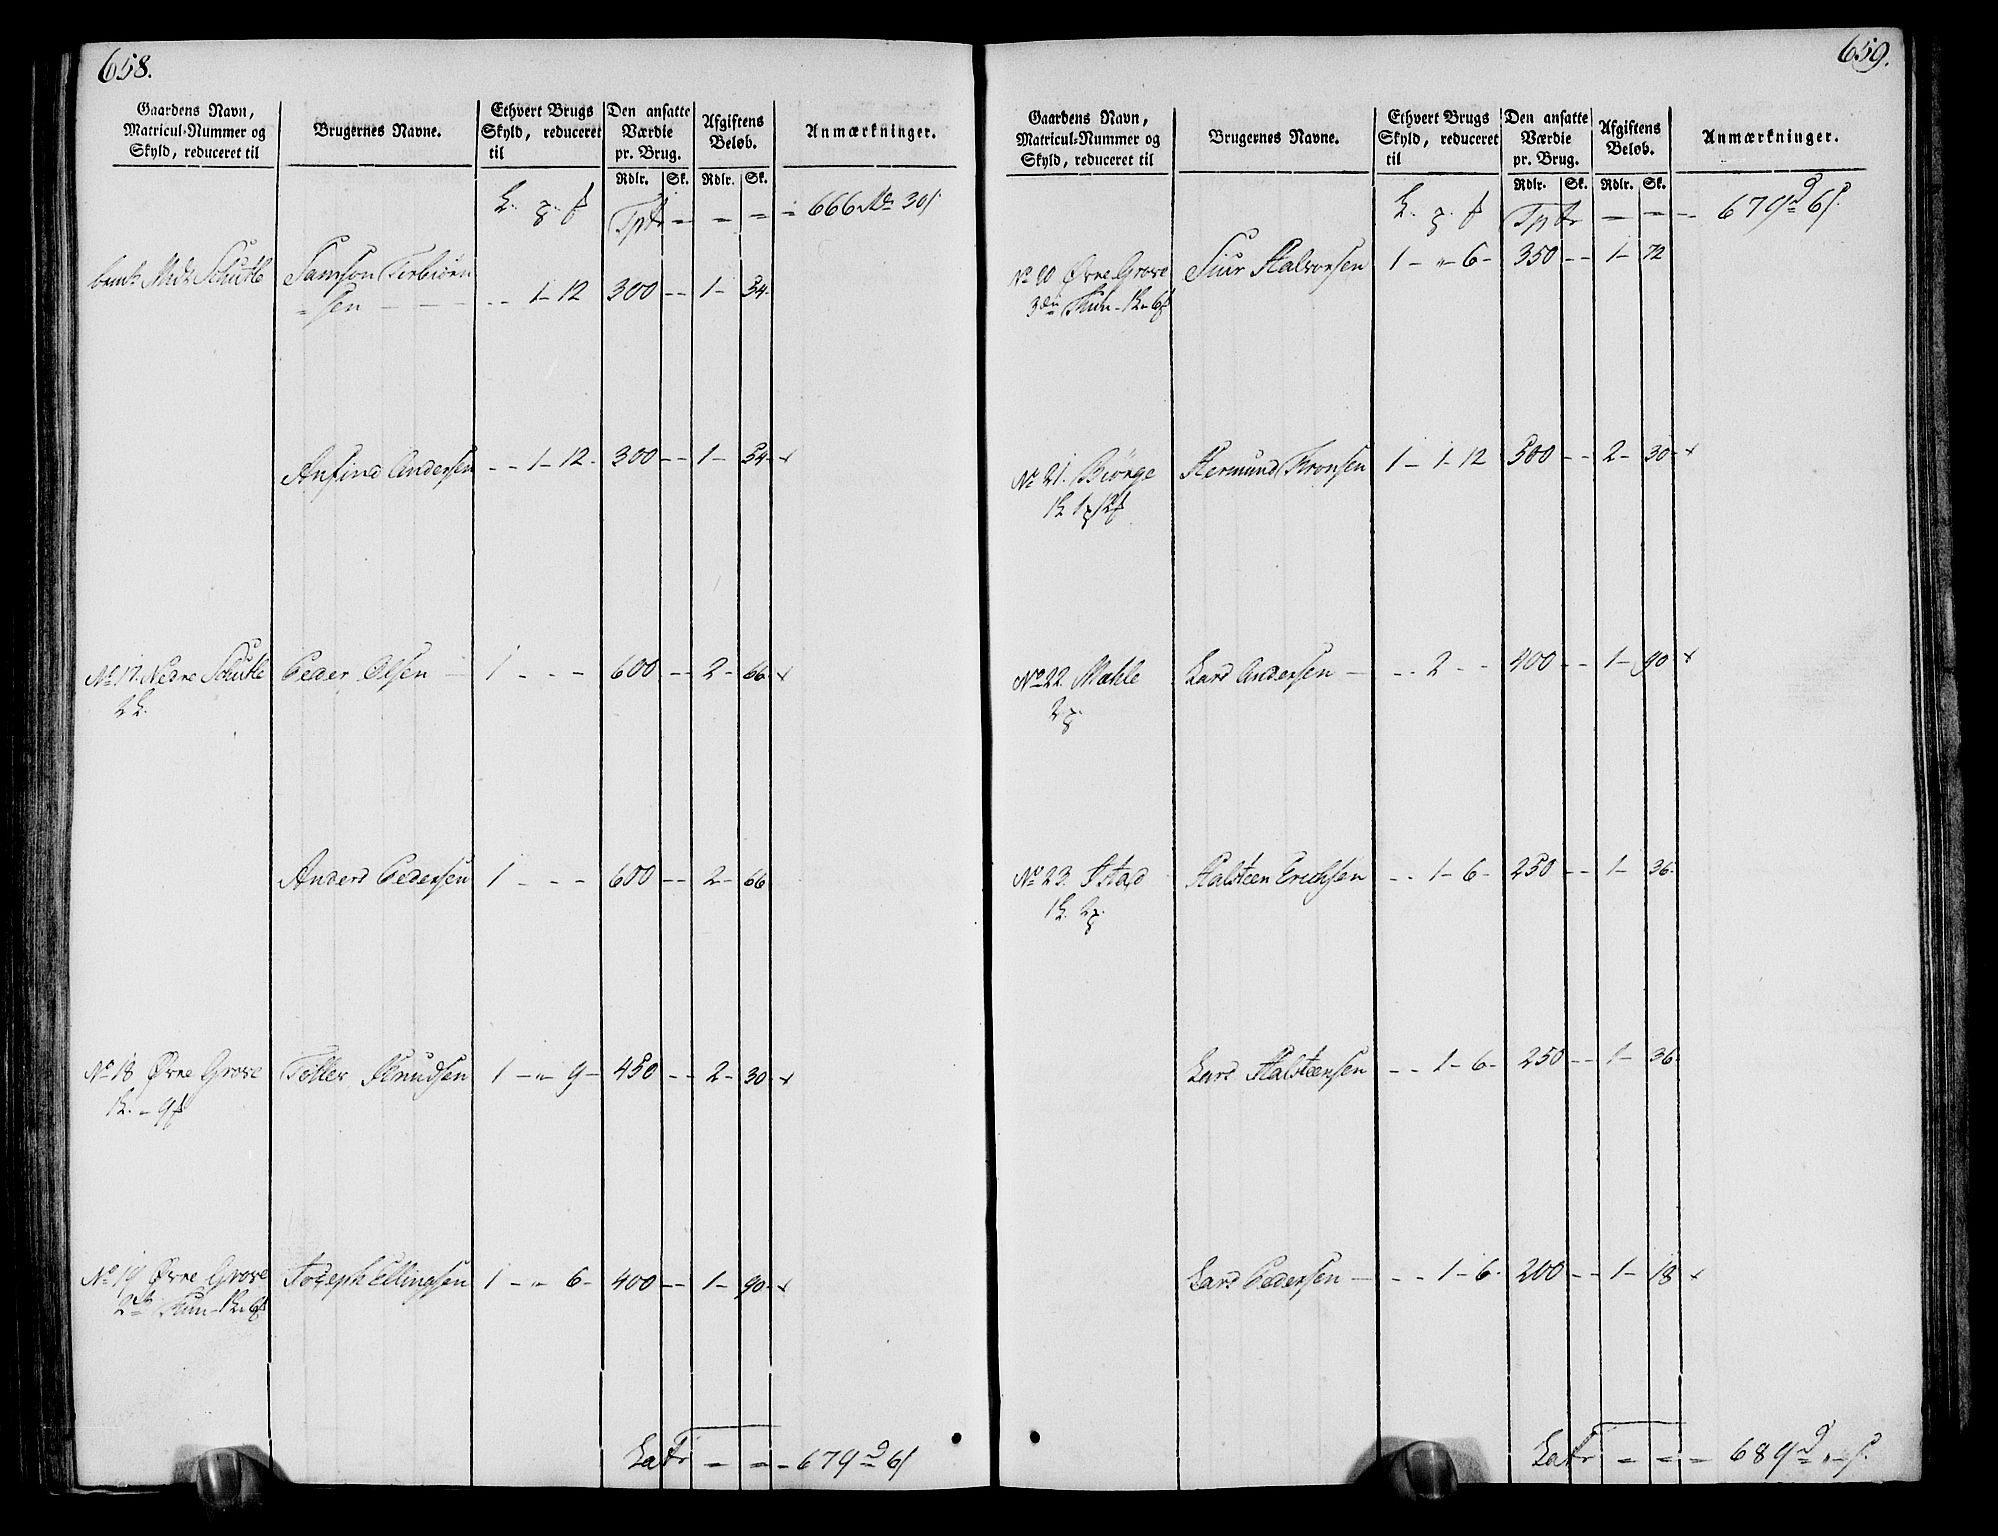 658.
Gaardens Navn,
Matricul-Nummer og
Skyld, reduceret til
Brugernes Navne.
Ethvert Brugs
Skyld, reduceret
til
Den ansatte
Værdie
pr. Brug.
Rdlr. Sk.
Afgiftens
Beløb.
Rdlr. Sk.
Anmærkninger.
Tptr - - - - 666 30
Schutle Samson Torbiørn
sen - - 1 - 12 300 - - 1 - 54
Anfind Andersen - - 1 - 12 - 300 - - 1 - 54 - x
No 17. Nedre Schutle Peder Olsen - 1 - - - 600 - - 2 - 66 x
2
Anders Pedersen 1 - - - 600 - - 2 - 66
No 18 Øvre Grove Knudsen 1 - " 9 - 450 - - 2 - 30 - x
1 - 9
No 19 Øvre Grove Joseph Ellingsen 1 - " 6 - 400 - - 1 - 90 - x
Latr - - - 679 6
659.
Gaardens Navn,
Matricul-Nummer og
Skyld, reduceret til
Brugernes Navne.
Ethvert Brugs
Skyld, reduceret
til
Den ansatte
Værdie
pr. Brug.
Rdlr. Sk.
Afgiftens
Beløb.
Rdlr. Sk.
Anmærkninger.
Tptr - - - 679 6
No 20 Øvre Grove Siur Halvorsen 1 - " 6 - 350 - - 1 - 72
No 21. Biørge Hermund Bronsen 1 - 1 - 12 500 - - 2 - 30 - x
1 1 12
No 22. Mahle Lars Andersen - - - 2 - - 400 - - 1 - 90 x
2
No 23. Istad Halsteen Erichsen - - 1 - 6 - 250 - - 1 - 36
1 2
Lars Halsteensen - - 1 - 6 - 250 - - 1 - 36
Lars Pedersen - - - 1 - 6 - 200 - - 1 - 18 x
Latr - - - 689